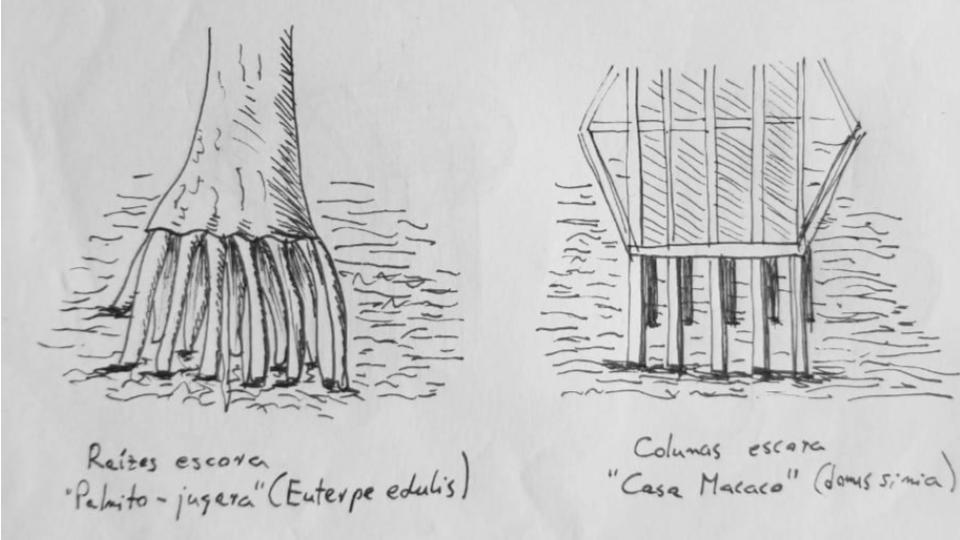 Raízes escora
"Palmito-juçara" (Euterpe edulis)
Colunas escora
"Casa Macaco" (domus simia)